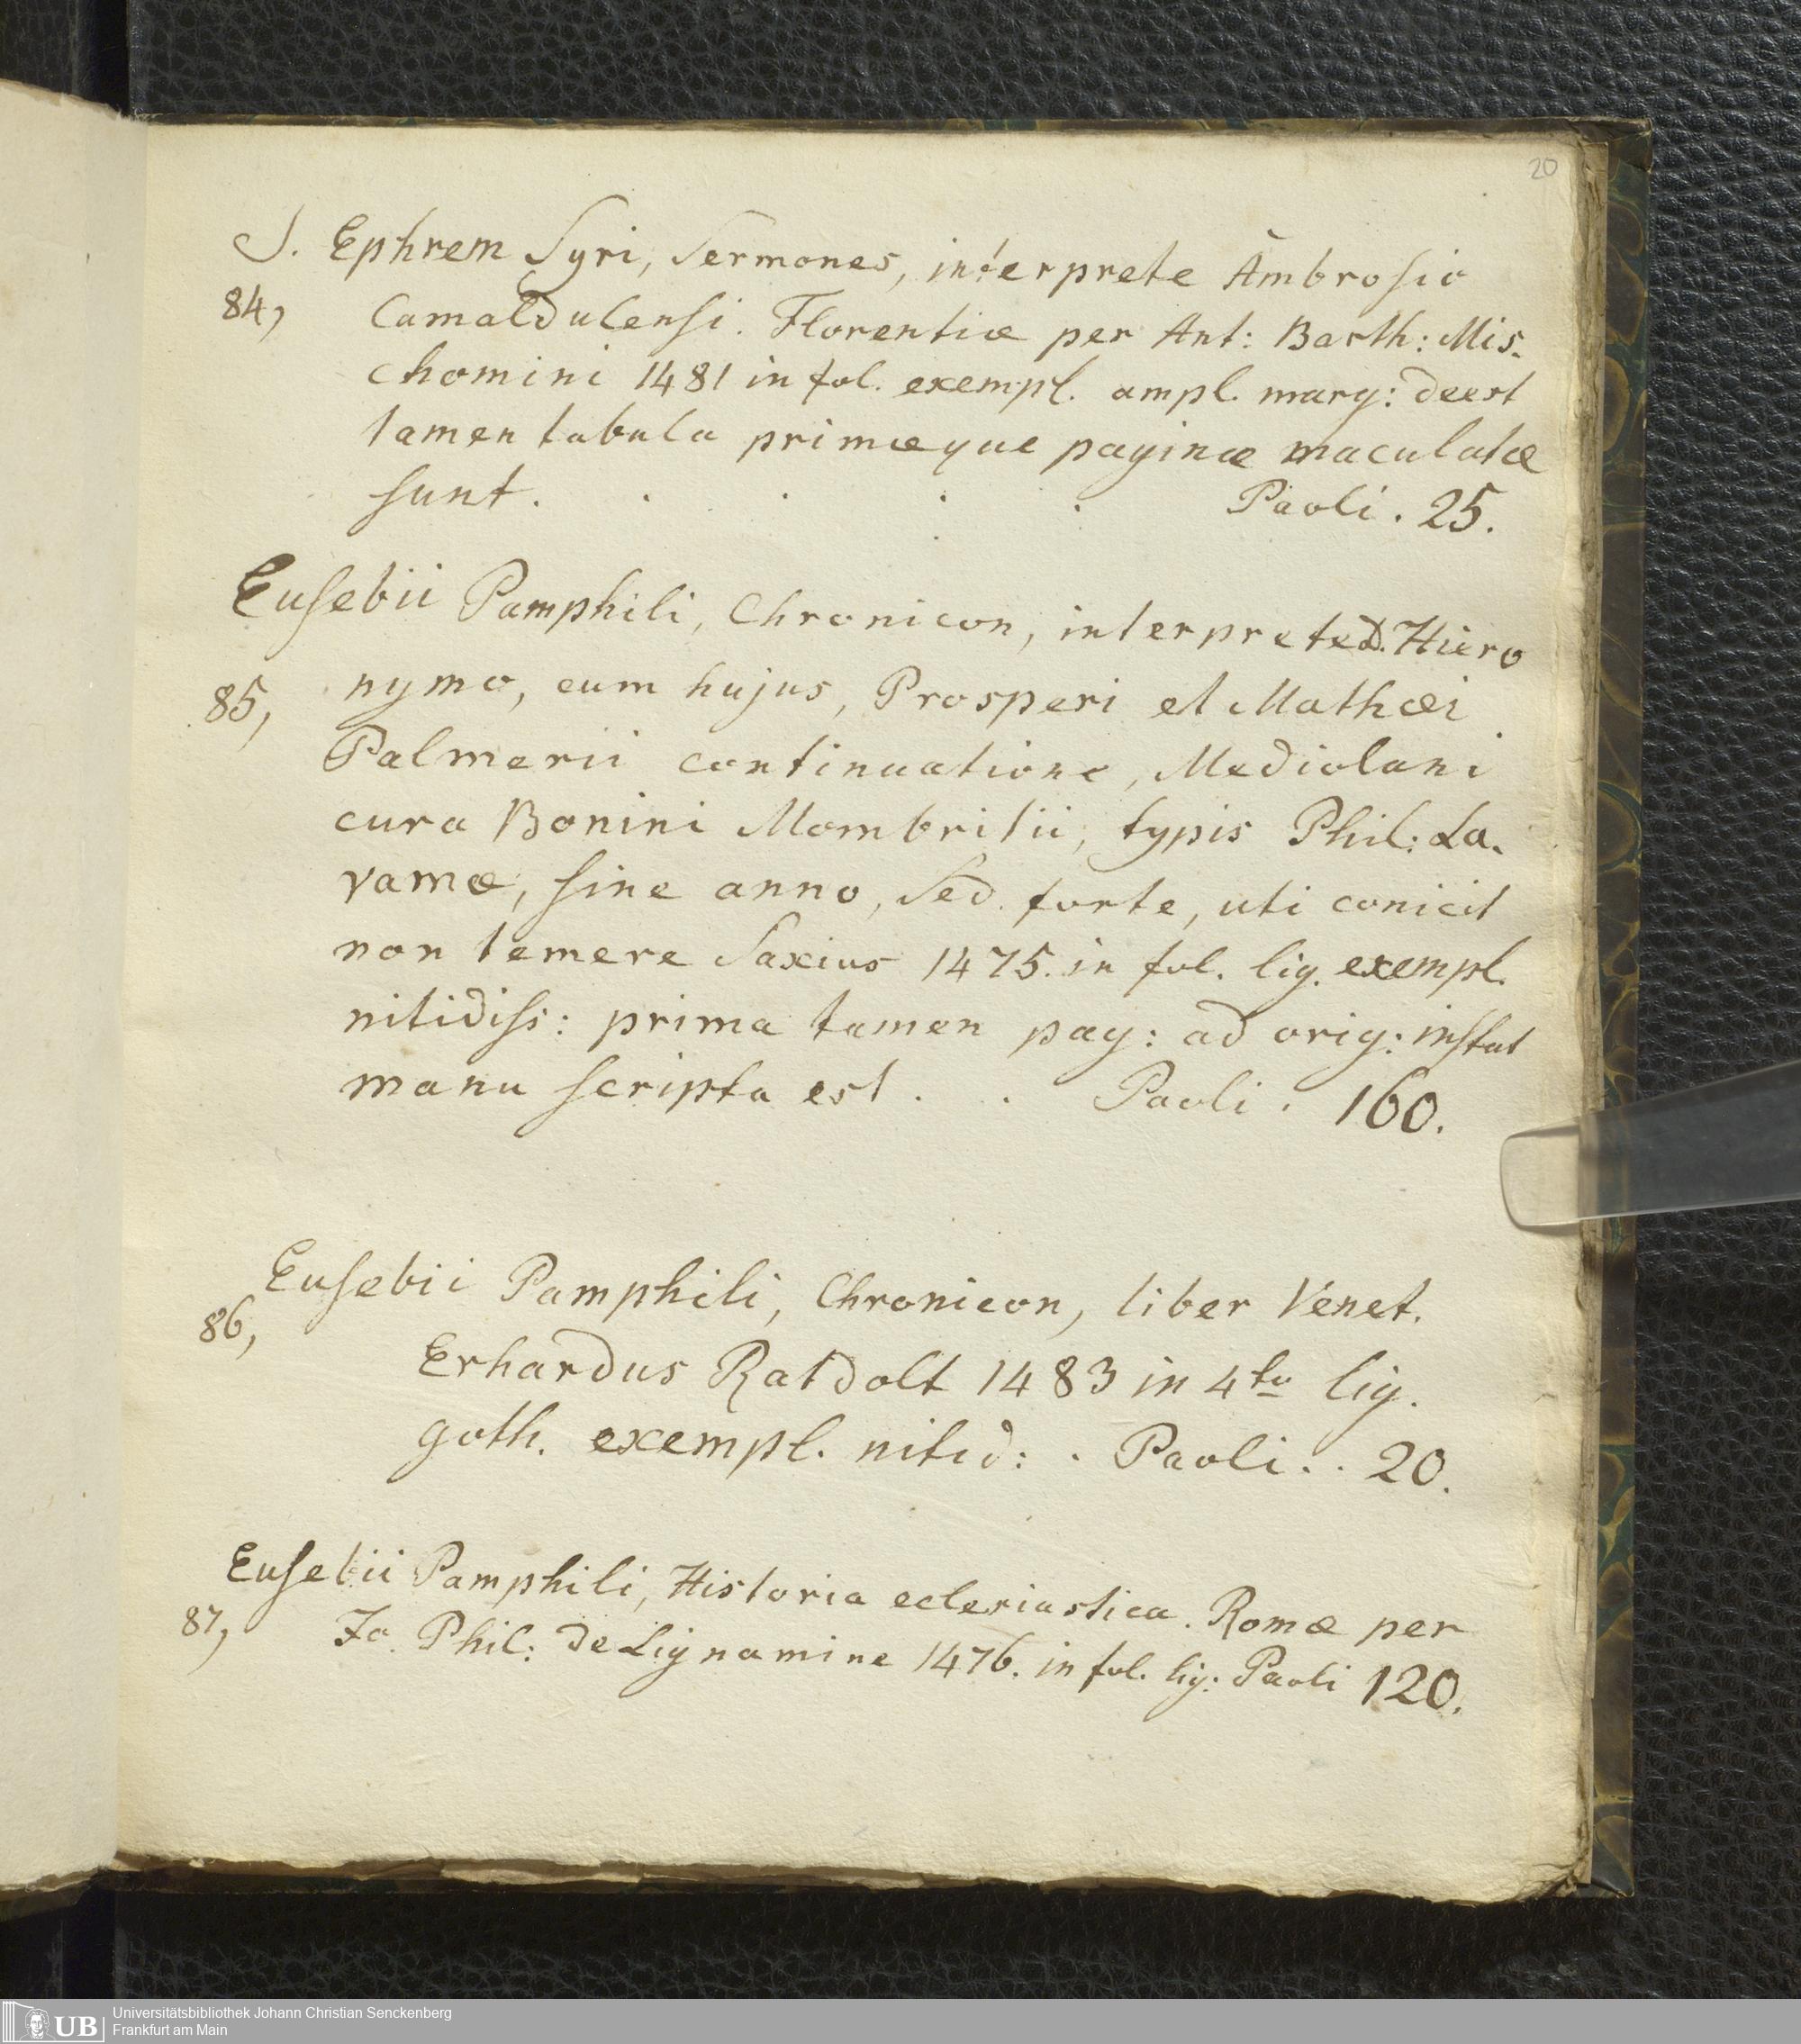 20
S. Ephrem Syri, Sermones, interprete Ambrosio
84, Camaldulensi. Florentiæ per Ant: Barth: Mis-
chomini 1481 in fol. exempl. ampl. marg: deest
tamen tabula primæque paginæ maculatæ
sunt. . . . . Paoli . 25.
Eusebii Pamphili, Chronicon, interprete D. Hiero
85, nymo, cum hujus, Prosperi et Mathæi
Palmerii continuatione, Mediolani
cura Bonini Mombritii, typis Phil: La-
vamæ, sine anno, sed forte, uti conicit
non temere Saxius 1475. in fol. lig. exempl.
nitidiss: prima tamen pag: ad orig: instat
manu scripta est . . Paoli . 160.
Eusebii Pamphili, Chronicon, liber Venet.
86, Erhardus Ratdolt 1483 in 4to lig.
goth. exempl. nitid: . Paoli . . 20.
Eusebii Pamphili, Historia eclesiastica. Romæ per
87, Jo. Phil: de Lignamine 1476. in fol. lig: Paoli 120.
UB
Universitätsbibliothek Johann Christian Senckenberg
Frankfurt am Main